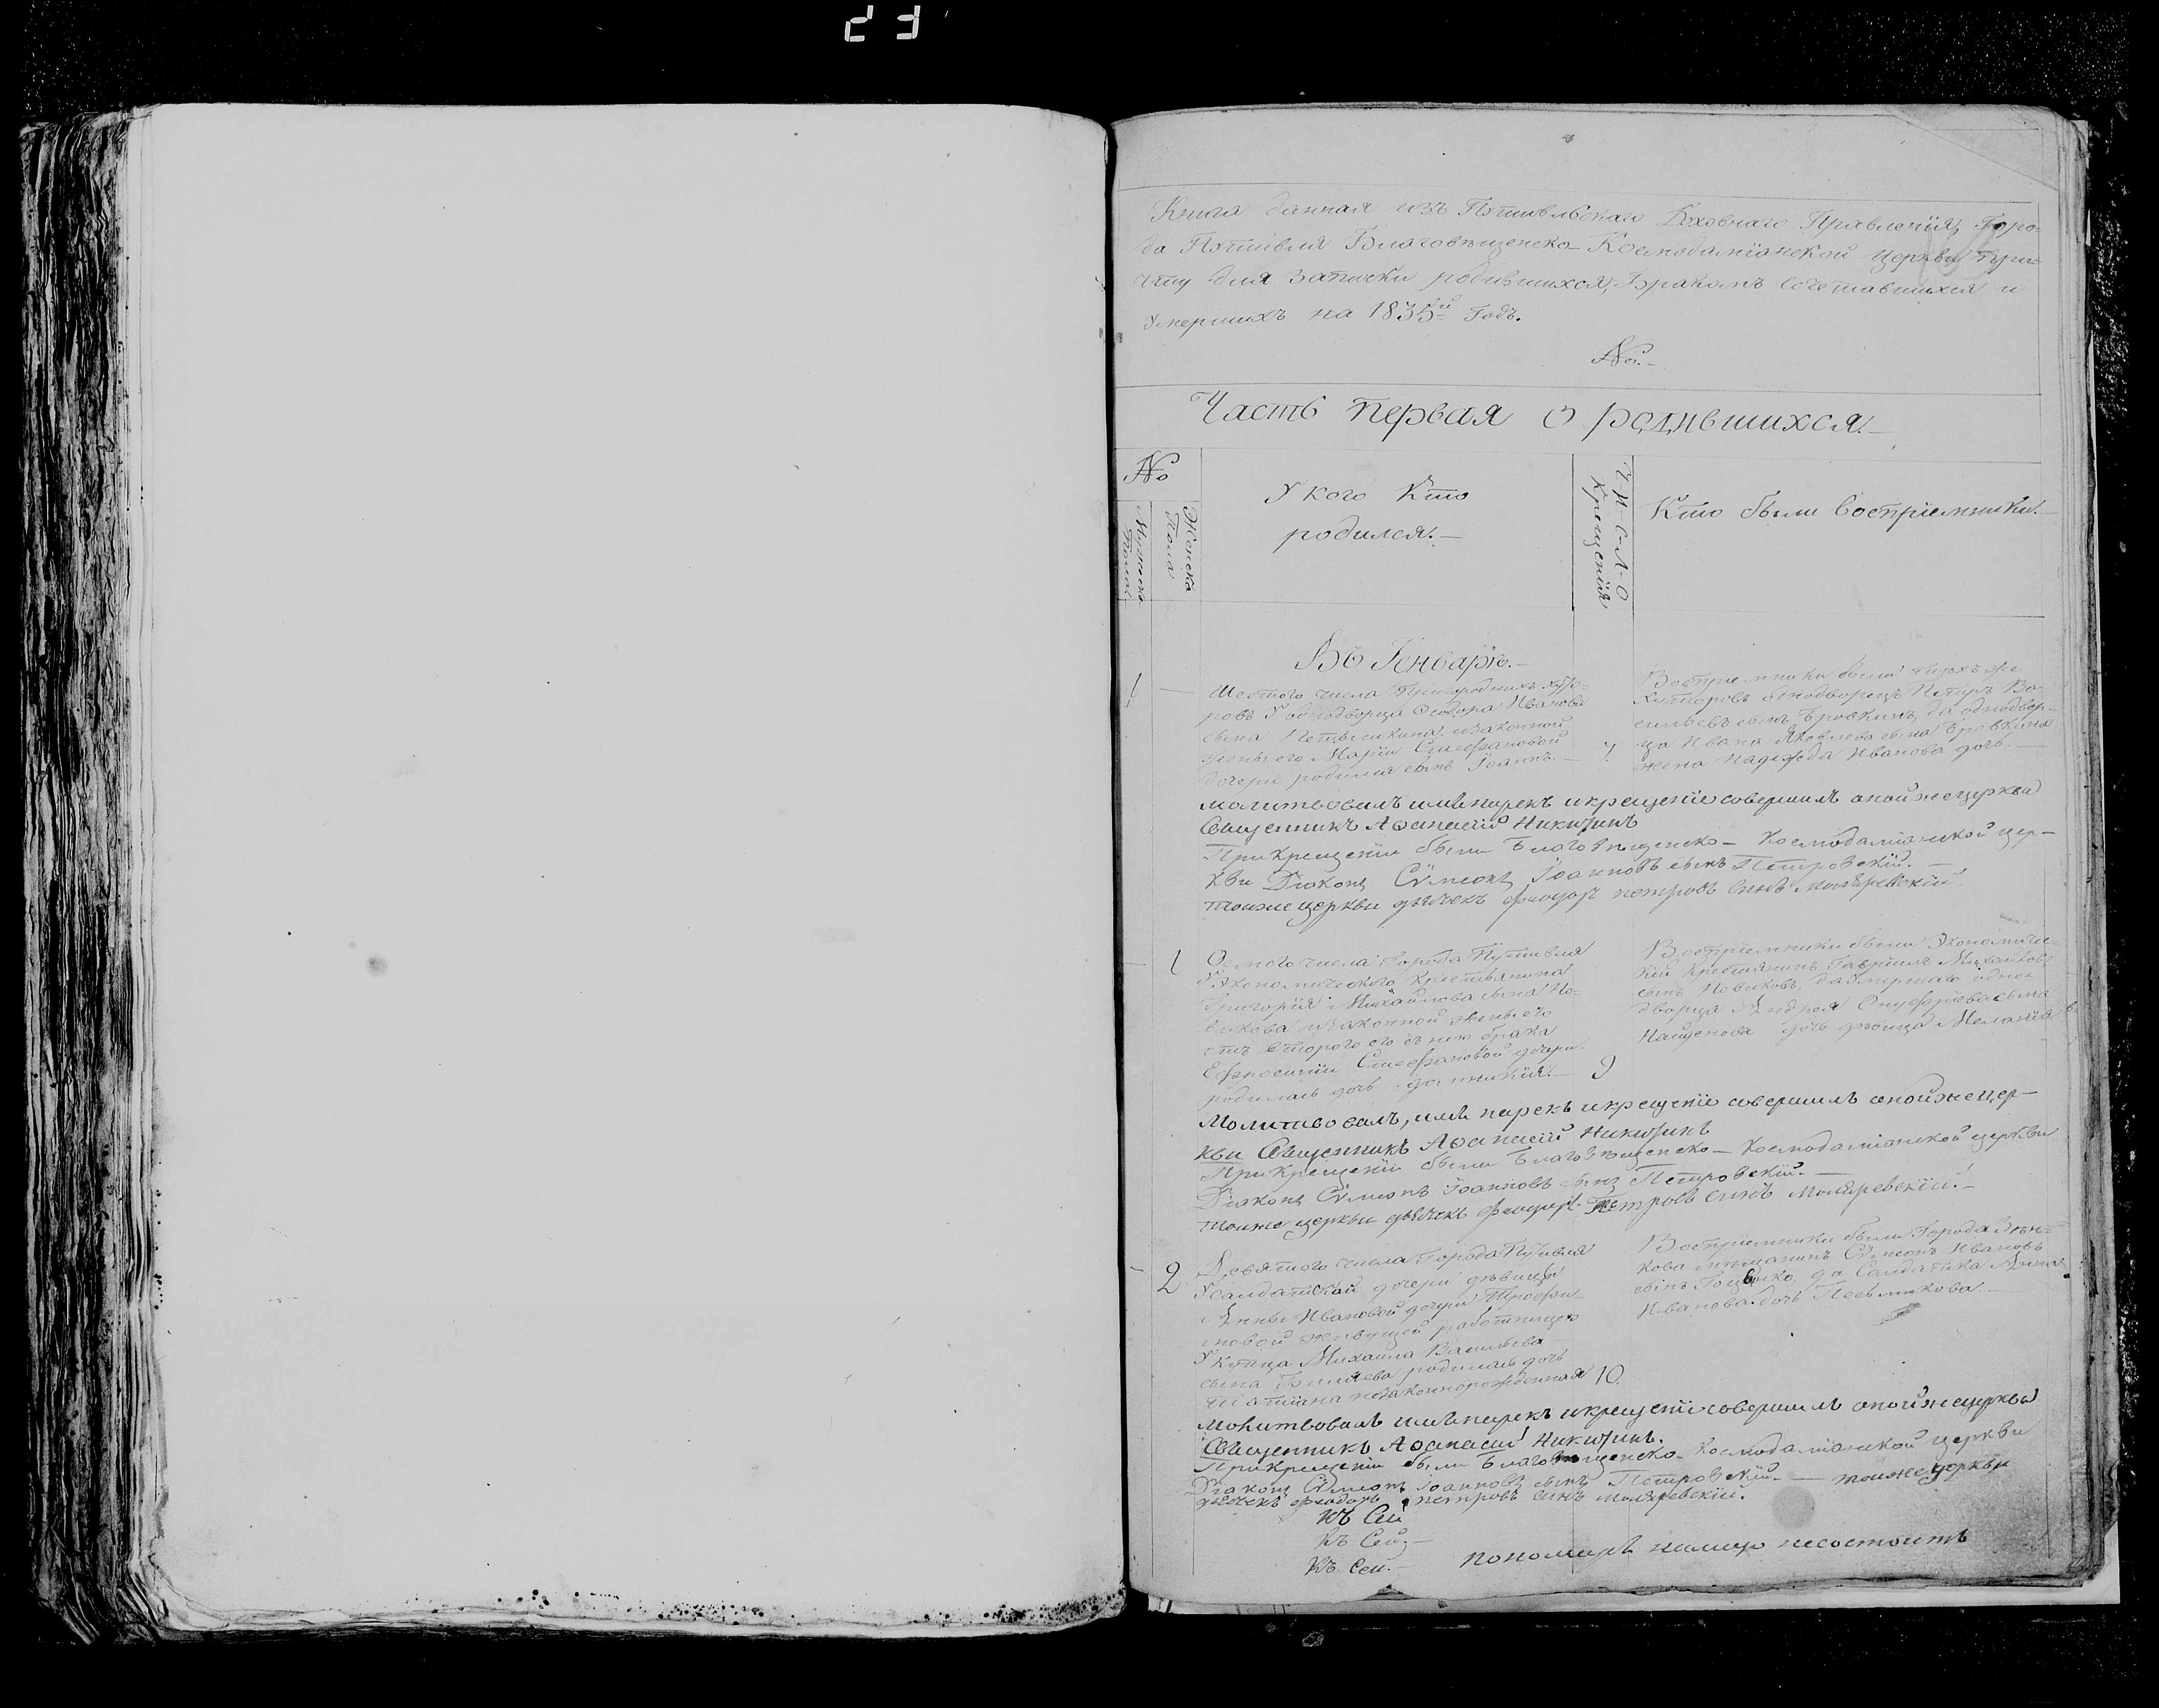 23
Книга данная изъ Путивльскаго Духовнаго Правленія, Горо-
да Путивля Благовѣщенско-Космодаміанской церкви при-
чту для записки родившихся, Бракомъ сочетавшихся и
умершихъ на 1835й Годъ.
No.-
Часть первая о родившихся.-
No
Мужеска Пола
Женска Пола
У кого Кто
родился.-
Ч-И-С-Л-О
Крещенія
Кто были Воспріемники.-
Въ Генварѣ.-
1
Шестого числа Пригородныхъ Хуто-
ровъ У однодворца Феодора Иванова
сына и законной
жены его Маріи Стефановой
дочери родился сынъ Іоаннъ.-
7
Воспріемники были тѣхъ же
Хуторовъ однодворецъ Петръ Ва-
сильевъ сынъ Бровкинъ, да однодвор-
ца Ивана Яковлева сына Бровкина
жена Надежда Иванова дочь.-
молитвовалъ имя нарекъ и крещеніе совершилъ оной же церкви
Священникъ Аѳанасій Никитинъ
При Крещеніи были Благовѣщенско-Космодаміанской цер-
кви Діаконъ Сѵмеонъ Іоанновъ сынъ Петровскій.-
тоя же церкви дьячекъ феодоръ петровъ сынъ
1
Осмого числа Города Путивля
У Экономического Крестьянина
Григорія Михайлова сына Но-
викова и законной жены его
отъ второго его съ нею брака
Ефросиніи Стефановой дочери
родилась дочь
9
Воспріемники были Экономиче-
кій Крестьянинъ Гавріилъ Михайловъ
сынъ Новиковъ, да умершаго одно-
дворца Андрея Онуфріева сына
дочь дѣвица Меланія
Молитвовалъ, имя нарекъ и крещеніе совершилъ оной же цер-
кви Священникъ Аѳанасій Никитинъ
При Крещеніи были Благовѣщенско-Космодаміанской церкви
Діаконъ Сѵмеонъ Іоанновъ сынъ Петровскій.-
тоя же церкви дьячекъ феодоръ Петровъ сынъ
2
Девятого числа Города Путивля
У солдатской дочери дѣвицы
Анны Ивановой дочери Трофи-
мовой живущей работницею
У Купца Михаила Васильева
сына родилась дочь
Татіана незаконнорожденная
10.
Воспріемники были Города Зѣнь-
кова мѣщанинъ Сѵмеонъ Ивановъ
сынъ да Солдатка Анна
Иванова дочь
Молитвовалъ имя нарекъ и крещеніе совершилъ оной же церкви
Священникъ Аѳанасій Никитинъ.
При Крещеніи были Благовѣщенско-Космодаміанской церкви
Діаконъ Сѵмеонъ Іоанновъ сынъ Петровскій.- тоя же церкви
дьячекъ феодоръ петровъ сынъ
Къ Сей
Къ Сей.-
Къ Сей.- пономаря налицо несостоитъ